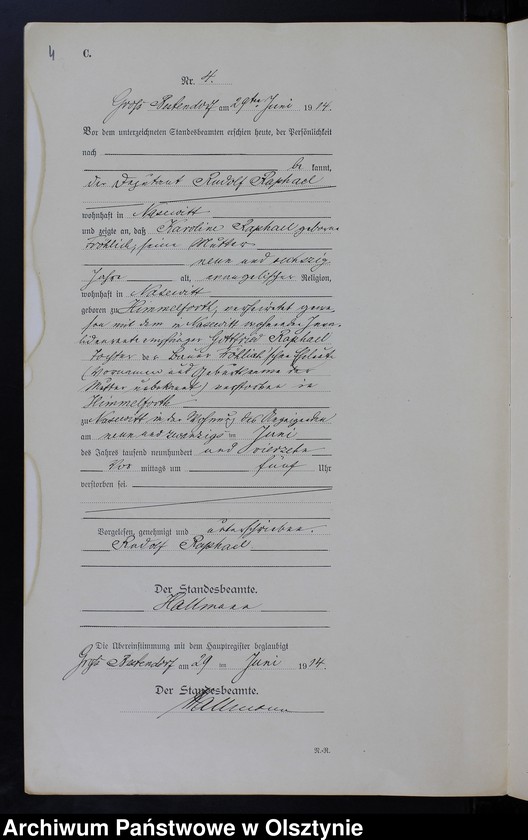 4
C.
Nr. 4.
Groß Beutendorf am 29ten Juni 1914.
Vor dem unterzeichneten Standesbeamten erschien heute, der Persönlichkeit
nach
bekannt,
der Deputant Rudolf Raphael
wohnhaft in Nasewitt
und zeigte an, daß Karoline Raphael geborene
Fröhlich, seine Mutter
neun und
Jahre alt, evangelischer Religion,
wohnhaft in Nasewitt
geboren zu Himmelforth, verheiratet gewe-
sen mit dem in Nasewitt wohnenden Inva-
lidenrentenempfänger Gottfried Raphael
Tochter der Bauer Fröhlich'schen Eheleute
(Vornamen und Geburtsname der
Mutter unbekannt) verstorben in
Himmelforth
zu Nasewitt, in der Wohnung des Anzeigenden
am neun und zwanzigsten Juni
des Jahres tausend neunhundert und vierzehn
Vormittags um fünf Uhr
verstorben sei.
Vorgelesen, genehmigt und unterschrieben.
Rudolf Raphael
Der Standesbeamte.
Hallmann
Die Übereinstimmung mit dem Hauptregister beglaubigt
Groß Beutendorf am 29 ten Juni 1914.
Der Standesbeamte.
Hallmann
N.-R.
Archiwum Państwowe w Olsztynie